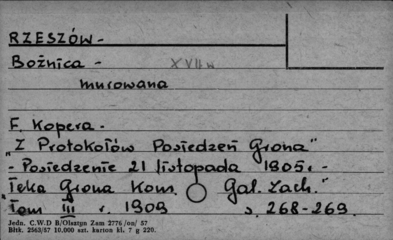 RZESZÓW -
Bożnica - XVII w
murowana
F. Kopera -
"Z Protokołów Posiedzeń Grona"
- Posiedzenie 21 listopada 1905 r -
Teka Grona Kons. Gal. Zach."
"Tom III r. 1909 s. 268-269.
Jedn. C.W.D B/Olsztyn Zam 2776 /on/ 57
Bltk. 2563/57 10.000 szt. karton kl. 7 g 220.